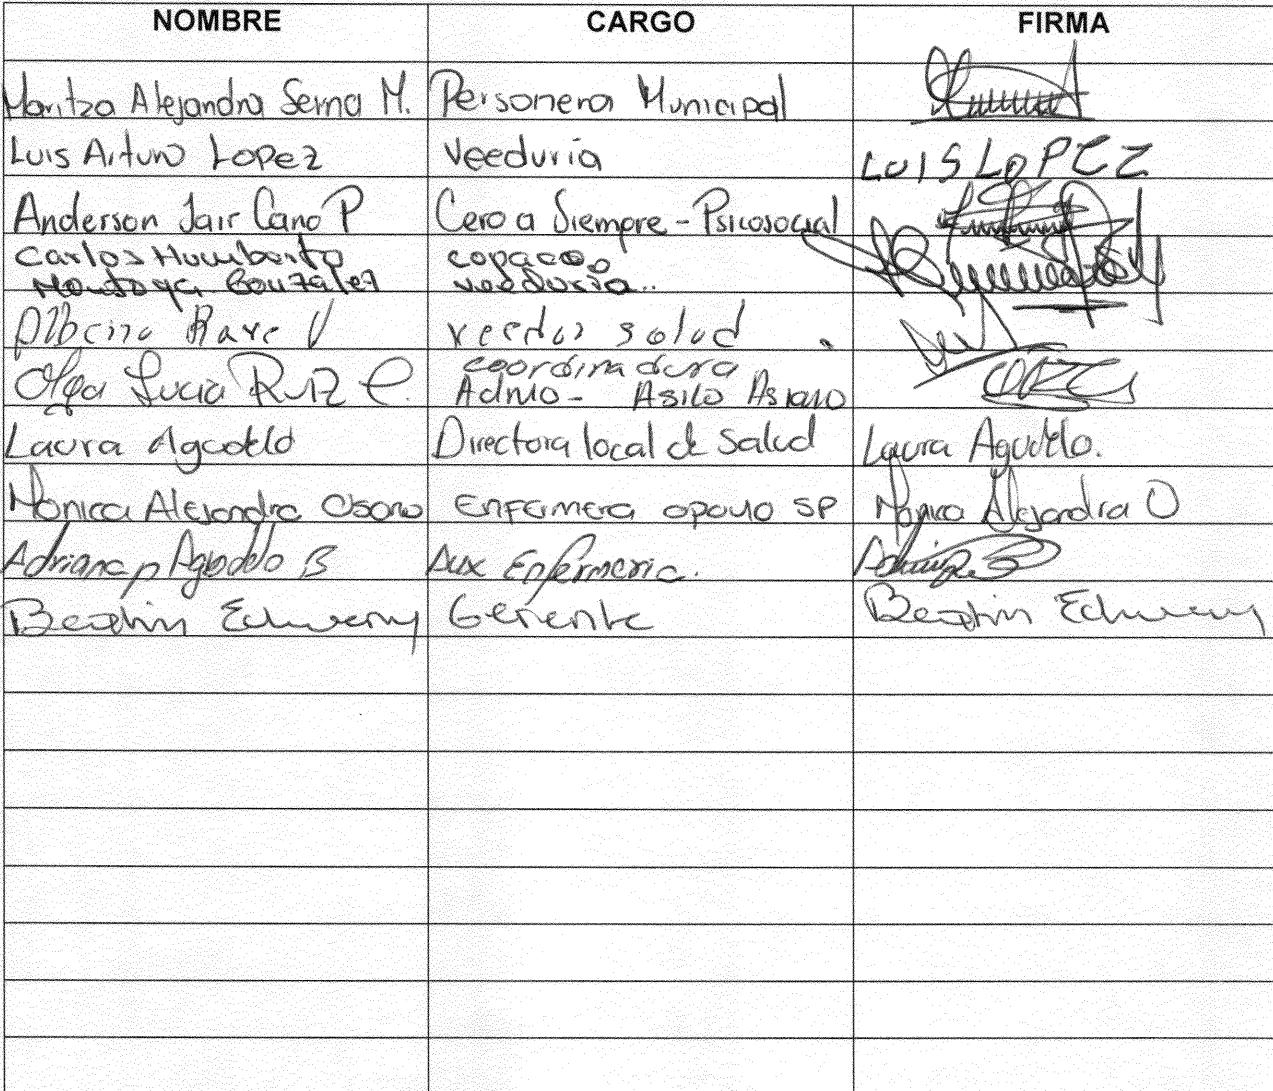 NOMBRE CARGO FIRMA
Maritza Alejandra Serna M. Personera Municipal
Luis Arturo Lopez Veeduria LUIS LOPEZ
Anderson Jair Cano P Cero a Siempre - Psicosocial
Carlos Humberto copaco
Montoya Gonzalez veeduria..
Albeiro Rave V veedor salud
Olga Lucia Ruiz C. coordinadora
Admo - Asilo
Laura Agudelo Directora local de Salud Laura Agudelo.
Monica Alejandra Osorio Enfermera apoyo SP Monica Alejandra O
Adriana p Agudelo B Aux Enfermeria.
Echeverry Gerente Echeverry